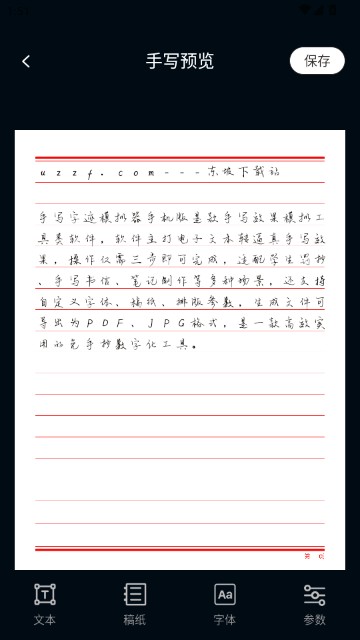 手写预览
保存
uzzf.com---东坡下载站
手写字迹模拟器手机版是款手写效果模拟工
具类软件，软件主打电子文本转逼真手写效
果，操作仅需三步即可完成，适配学生罚抄
、手写书信、笔记制作等多种场景，还支持
自定义字体、稿纸、排版参数，生成文件可
导出为PDF、JPG格式，是一款高效实
用的免手抄数字化工具。
第 页
T
Aa
文本
稿纸
字体
参数